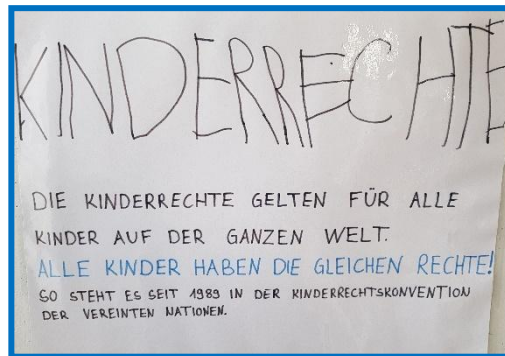 KINDERRECHTE
DIE KINDERRECHTE GELTEN FÜR ALLE
KINDER AUF DER GANZEN WELT.
ALLE KINDER HABEN DIE GLEICHEN RECHTE!
SO STEHT ES SEIT 1989 IN DER KINDERRECHTSKONVENTION
DER VEREINTEN NATIONEN.